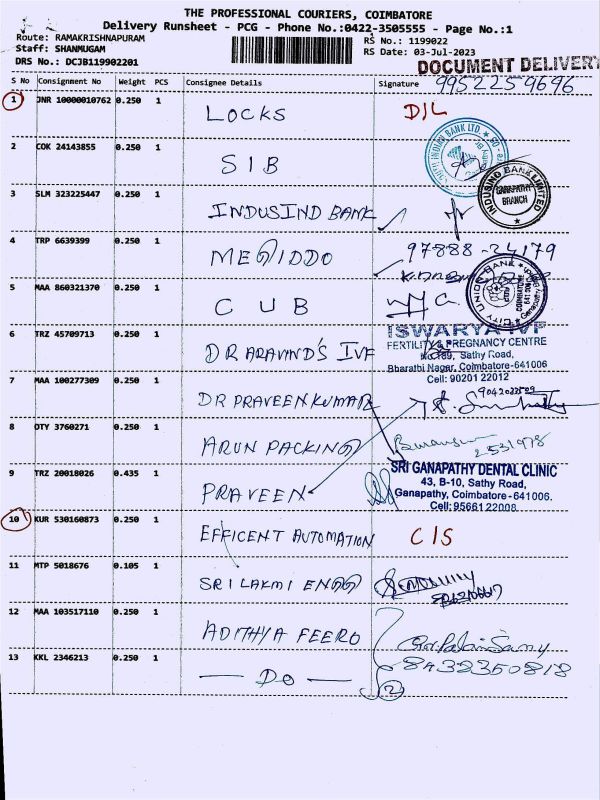 THE PROFESSIONAL COURIERS, COIMBATORE
Delivery Runsheet - PCG - Phone No.:0422-3505555 - Page No.:1
Route: RAMAKRISHNAPURAM
Staff: SHANMUGAM
DRS No.: DCJB119902201
RS No.: 1199022
RS Date: 03-Jul-2023
DOCUMENT DELIVERY
9952259696
S No Consignment No Weight PCS Consignee Details Signature
1 JNR 10000010762 0.250 1 LOCKS D/L
2 COK 24143855 0.250 1 SIB
3 SLM 323225447 0.250 1 INDUSIND BANK
INDUSIND BANK LIMITED
GANAPATHY BRANCH
4 TRP 6639399 0.250 1 MEGIDDO 97888-24179
5 MAA 860321370 0.250 1 CUB
CITY UNION BANK
COIMBATORE
641 006
Ganapathy
6 TRZ 45709713 0.250 1 DR ARAVIND'S IVF
ISWARYA IVF
FERTILITY & PREGNANCY CENTRE
No.189, Sathy Road,
Bharathi Nagar, Coimbatore-641006
Cell: 90201 22012
7 MAA 100277309 0.250 1 DR PRAVEEN KUMAR
8 OTY 3760271 0.250 1 ARUN PACKING
2531978
9 TRZ 20018026 0.435 1 PRAVEEN
SRI GANAPATHY DENTAL CLINIC
43, B-10, Sathy Road,
Ganapathy, Coimbatore-641006.
Cell: 95661 22008
10 KUR 530160873 0.250 1 EFFICENT AUTOMATION C/S
11 MTP 5018676 0.105 1 SRI LAKMI ENGG
12 MAA 103517110 0.250 1 ADITHYA FEERO
13 KKL 2346213 0.250 1 — DO — 2
8432350818